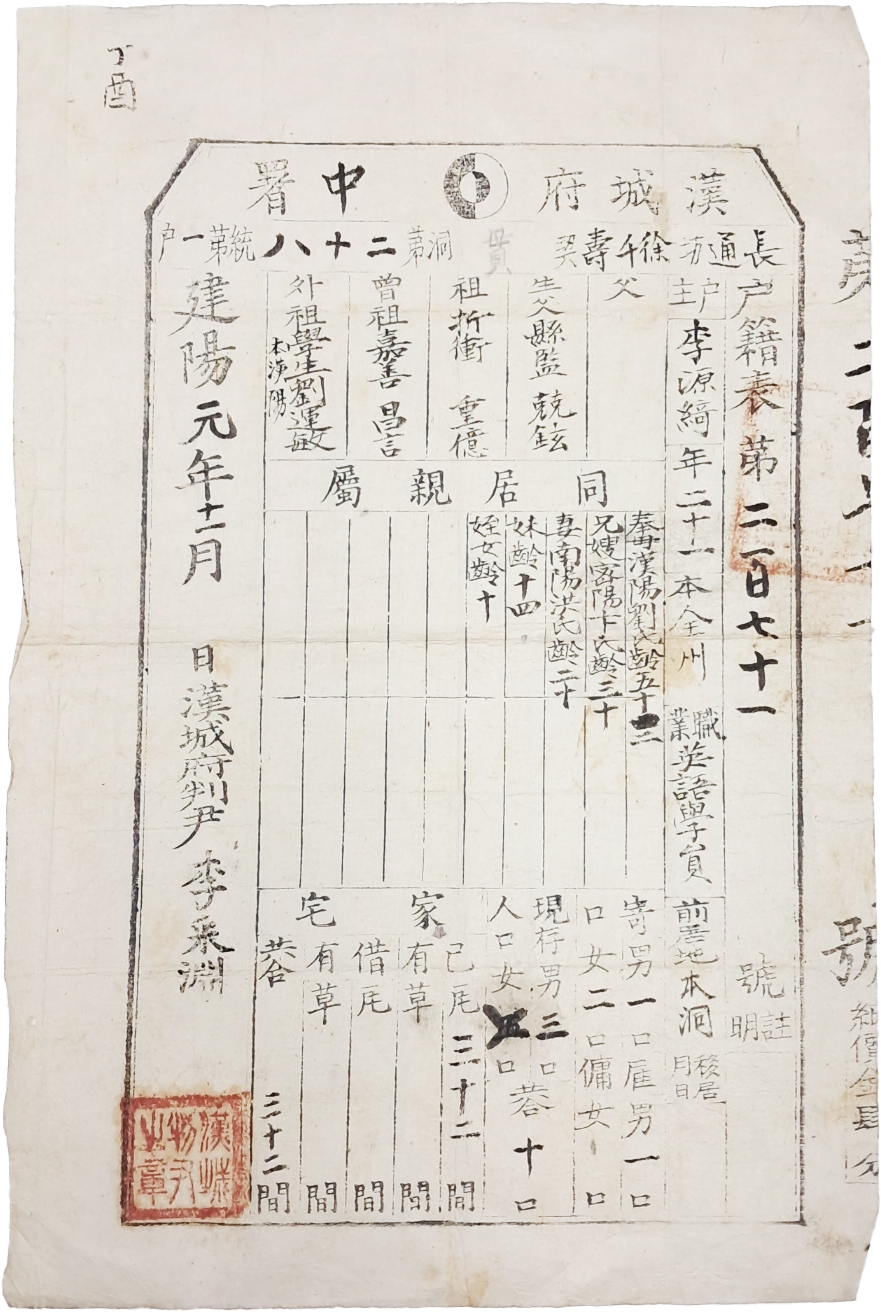 丁酉
漢城府 中署
長通坊 徐千壽契 貫洞 第二十八統 第一戶
戶籍表 第二百七十一號
註明
戶主 李源綺 年二十一 本全州 職業 英語學員 前居地 本洞 移居 月 日
父
生父縣監 兢鉉
祖折衝 重億
曾祖嘉善 昌言
外祖學生劉運敏 本漢陽
同居親屬
奉母漢陽劉氏齡五十二
兄嫂密陽卞氏齡三十
妻南陽洪氏齡二十
妹齡十四
姪女齡十
寄口 男一口 女二口
雇男一口
傭女一口
現存人口 男三口 女五口 共十口
家宅
己有 瓦三十二間
草 間
借有 瓦 間
草 間
共合 三十二間
建陽元年十二月 日 漢城府判尹 李采淵
漢城判尹之章
第二百七十一號
紙價金肆分